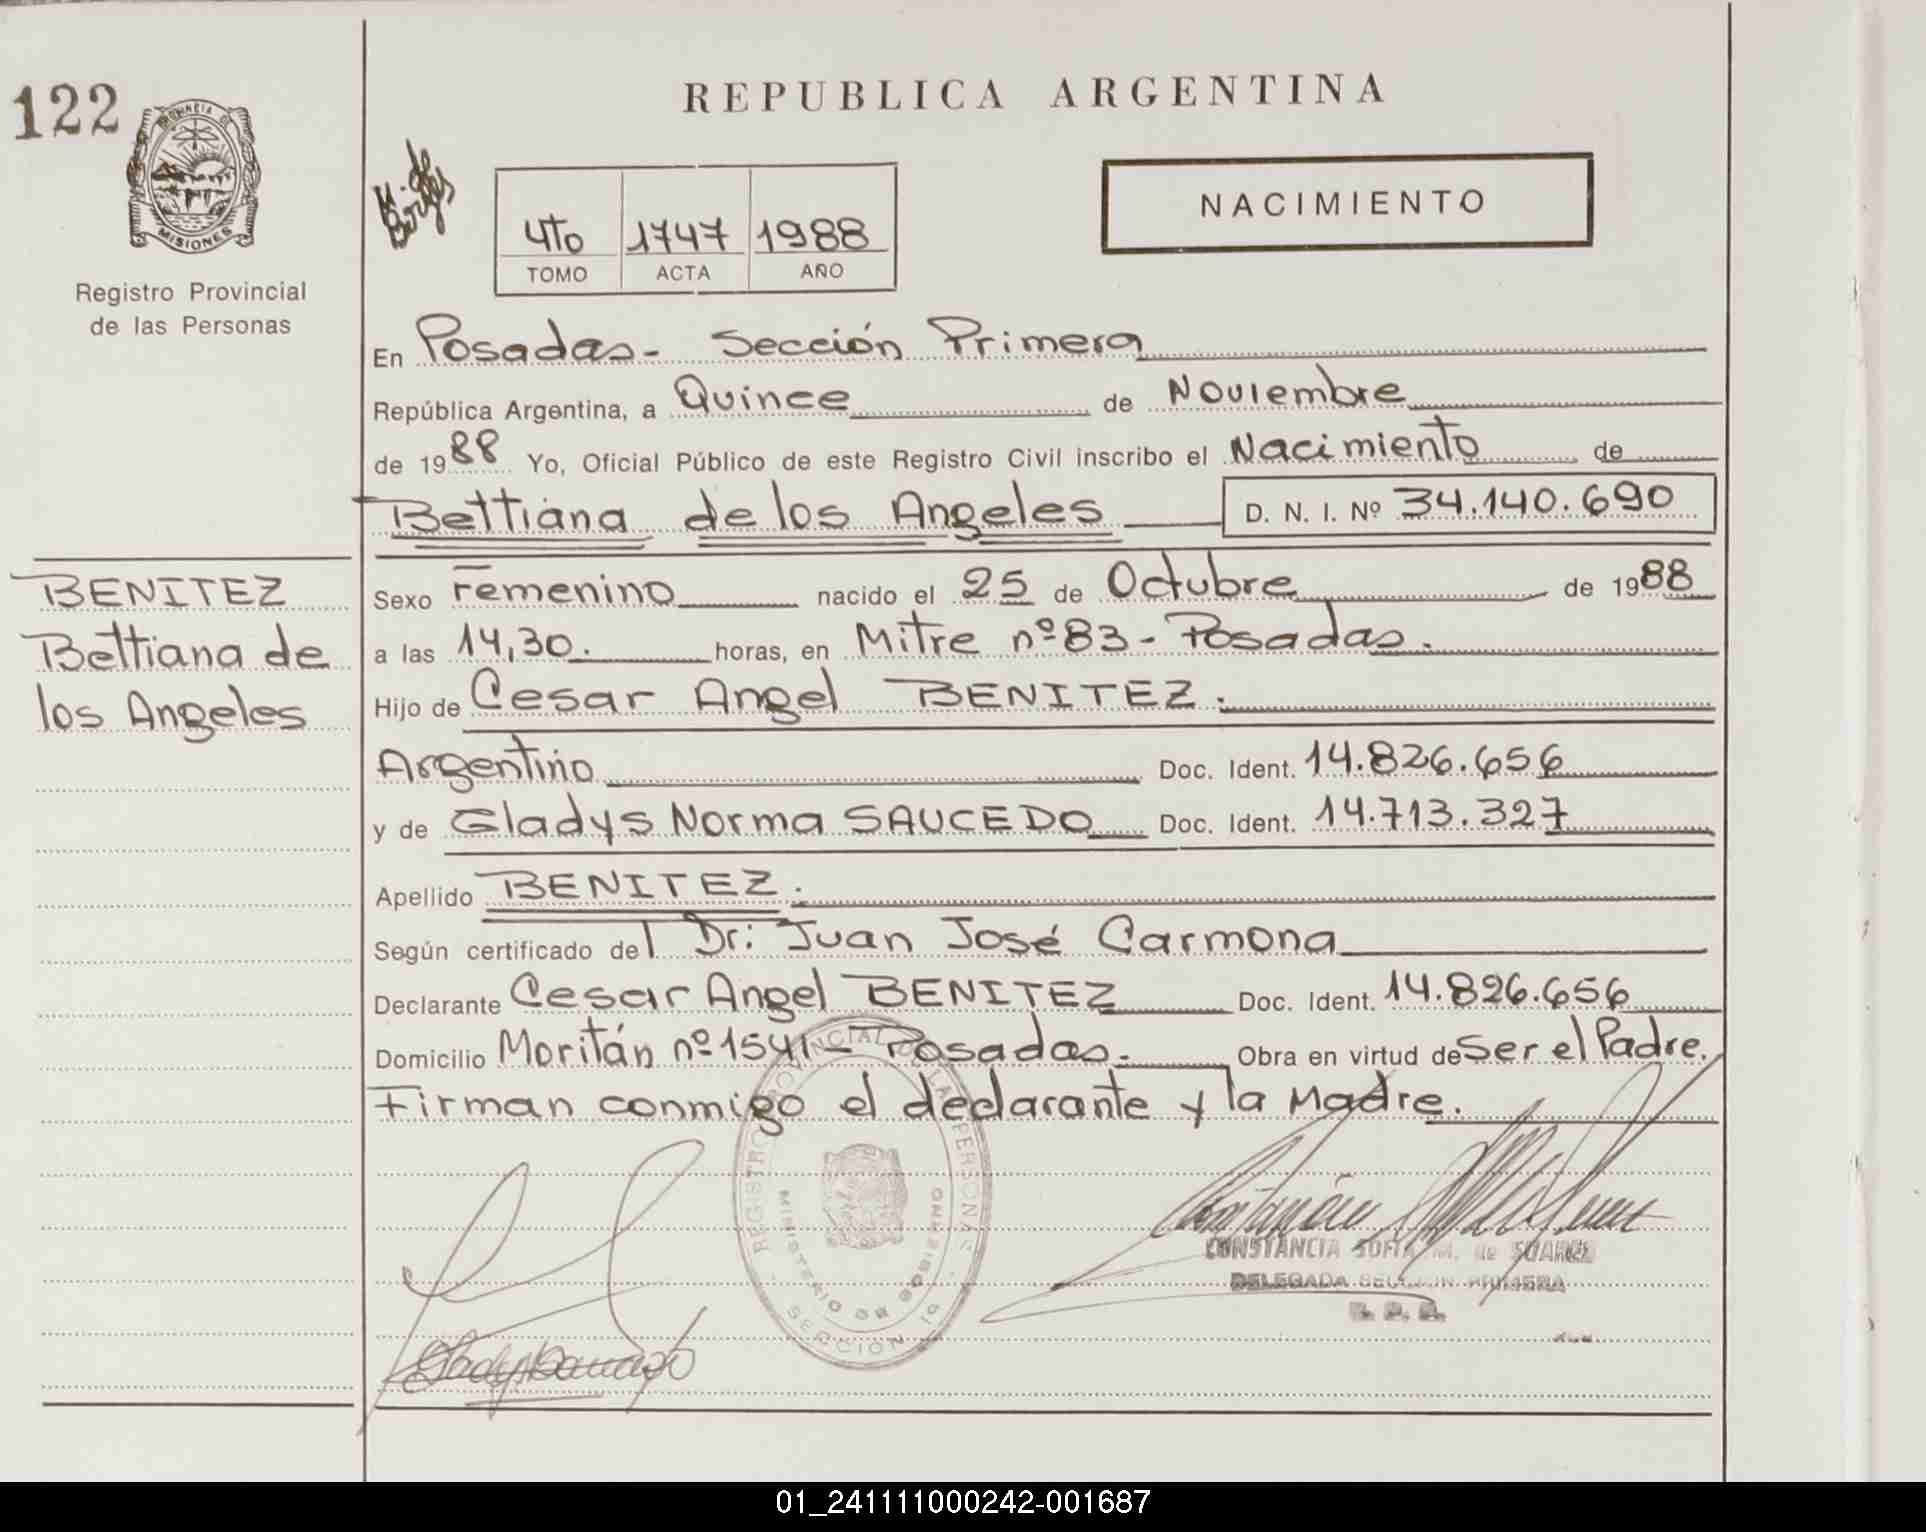 122
REPUBLICA ARGENTINA
PROVINCIA DE
MISIONES
Registro Provincial
de las Personas
M. de
Borges
4to 1747 1988
TOMO ACTA AÑO
NACIMIENTO
En Posadas- Sección Primera
República Argentina, a Quince de Noviembre
de 1988 Yo, Oficial Público de este Registro Civil inscribo el Nacimiento de
Bettiana de los Angeles D. N. I. Nº 34.140.690
BENITEZ
Bettiana de
los Angeles
Sexo Femenino nacido el 25 de Octubre de 1988
a las 14,30. horas, en Mitre nº 83- Posadas.
Hijo de Cesar Angel BENITEZ.
Argentino Doc. Ident. 14.826.656
y de Gladys Norma SAUCEDO Doc. Ident. 14.713.327
Apellido BENITEZ.
Según certificado del Dr: Juan José Carmona
Declarante Cesar Angel BENITEZ Doc. Ident. 14.826.656
Domicilio Moritán nº 1541- Posadas. Obra en virtud de Ser el Padre.
Firman conmigo el declarante y la Madre.
REGISTRO PROVINCIAL DE LAS PERSONAS
MINISTERIO DE GOBIERNO
SECCION 1a
CONSTANCIA SOFIA M. de SUAREZ
DELEGADA SECCION PRIMERA
01_241111000242-001687